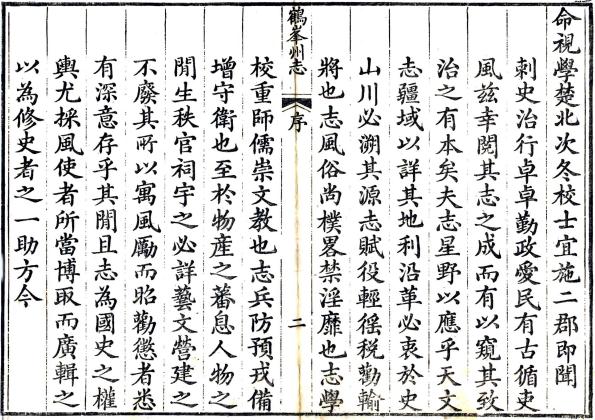 命視學楚北次冬校士宜施二郡即聞
刺史治行卓卓勤政愛民有古循吏
風茲幸閱其志之成而有以窺其致
治之有本矣夫志星野以應乎天文
志疆域以詳其地利沿革必衷於史
山川必溯其源志賦役輕徭税勸輸
將也志風俗尚樸畧禁淫靡也志學
鶴峯州志
序
二
校重師儒崇文教也志兵防預戎備
增守衛也至於物産之蕃息人物之
閒生秩官祠宇之必詳藝文營建之
不廢其所以寓風勵而昭勸懲者悉
有深意存乎其閒且志為國史之權
輿尤採風使者所當博取而廣輯之
以為修史者之一助方今